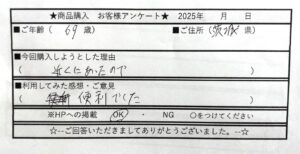 ★商品購入 お客様アンケート★ 2025年 月 日
■ご年齢( 69 歳) ■ご住所(茨城 県)
■今回購入しようとした理由
( 近くにあったので )
■利用してみた感想・ご意見
便利でした
※HPへの掲載 OK ・ NG ○をつけてください
☆--ご回答いただきましてありがとうございました。--☆